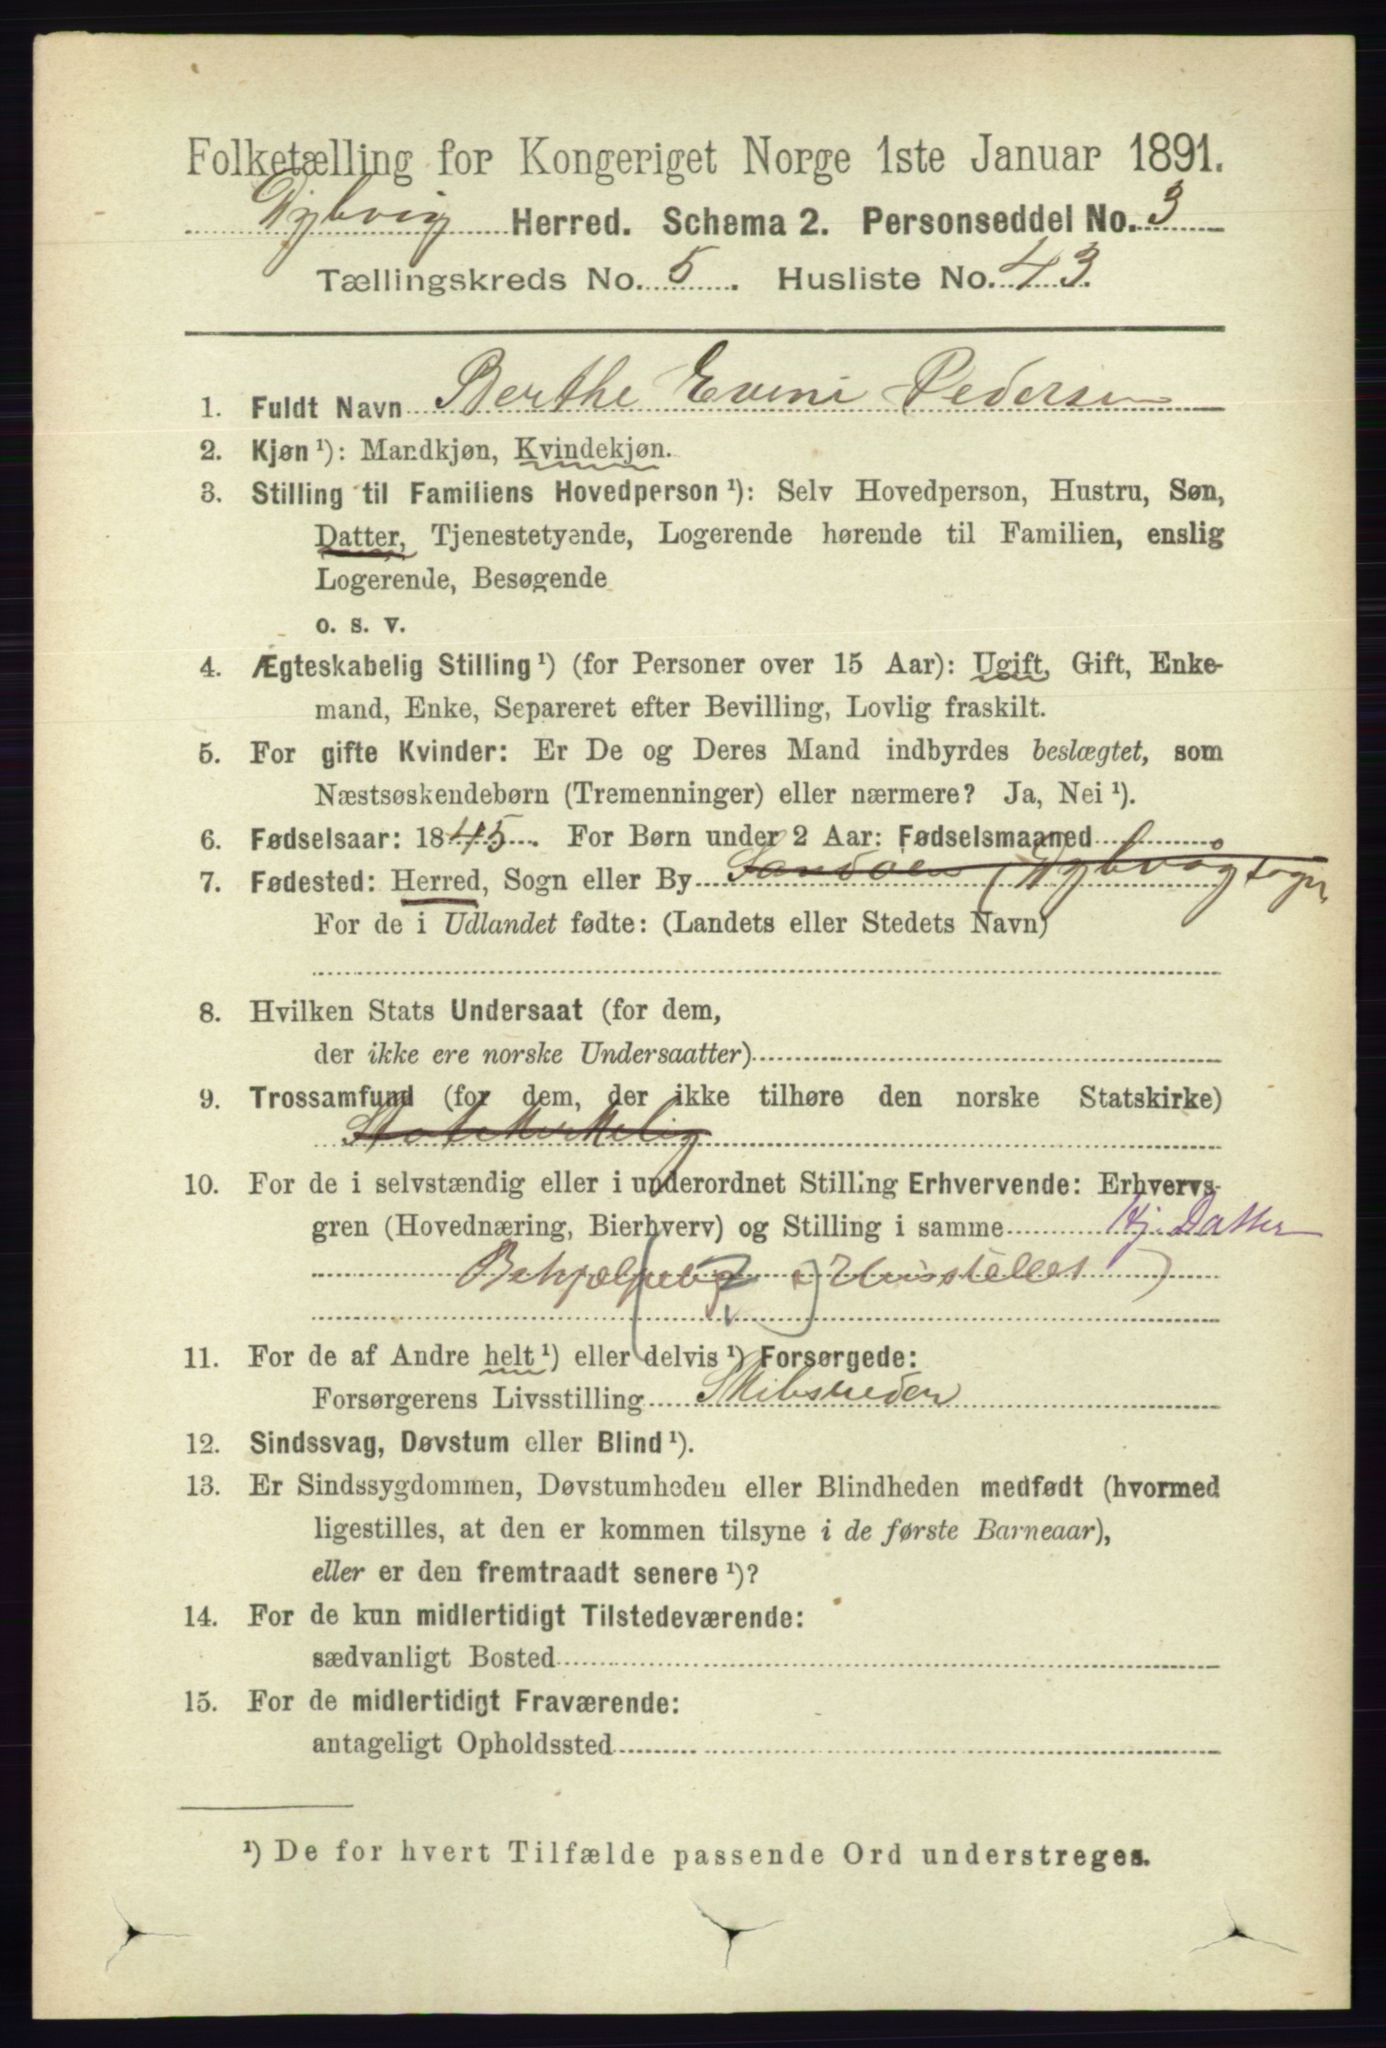 Folketælling for Kongeriget Norge 1ste Januar 1891.
Dybvig Herred. Schema 2. Personseddel No. 3
Tællingskreds No. 5. Husliste No. 43.
1. Fuldt Navn Berthe Evine Pedersen
2. Kjøn ¹): Mandkjøn, Kvindekjøn.
3. Stilling til Familiens Hovedperson ¹): Selv Hovedperson, Hustru, Søn,
Datter, Tjenestetyende, Logerende hørende til Familien, enslig
Logerende, Besøgende
o. s. v.
4. Ægteskabelig Stilling ¹) (for Personer over 15 Aar): Ugift, Gift, Enke-
mand, Enke, Separeret efter Bevilling, Lovlig fraskilt.
5. For gifte Kvinder: Er De og Deres Mand indbyrdes beslægtet, som
Næstsøskendebørn (Tremenninger) eller nærmere? Ja, Nei ¹).
6. Fødselsaar: 1845. For Børn under 2 Aar: Fødselsmaaned
7. Fødested: Herred, Sogn eller By Sandøen (Dybvåg Sogn
For de i Udlandet fødte: (Landets eller Stedets Navn)
8. Hvilken Stats Undersaat (for dem,
der ikke ere norske Undersaatter)
9. Trossamfund (for dem, der ikke tilhøre den norske Statskirke)
Statskirkelig
10. For de i selvstændig eller i underordnet Stilling Erhvervende: Erhvervs-
gren (Hovednæring, Bierhverv) og Stilling i samme Hj. Datter
Behjælpelig i Husstellet)
11. For de af Andre helt ¹) eller delvis ¹) Forsørgede:
Forsørgerens Livsstilling Skibsreder
12. Sindssvag, Døvstum eller Blind ¹).
13. Er Sindssygdommen, Døvstumheden eller Blindheden medfødt (hvormed
ligestilles, at den er kommen tilsyne i de første Barneaar),
eller er den fremtraadt senere ¹)?
14. For de kun midlertidigt Tilstedeværende:
sædvanligt Bosted
15. For de midlertidigt Fraværende:
antageligt Opholdssted
¹) De for hvert Tilfælde passende Ord understreges.